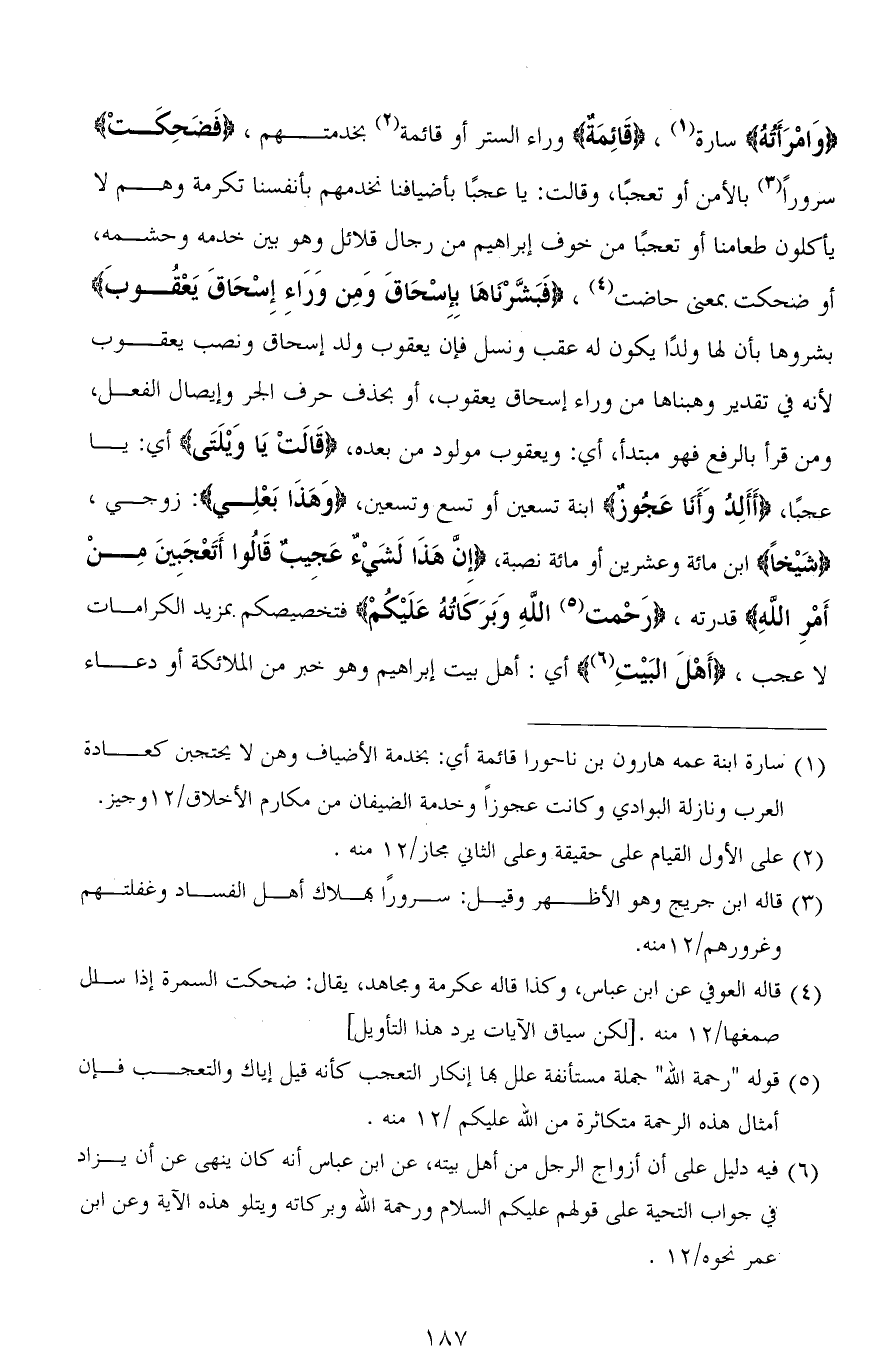 ﴿وَامْرَأَتُهُ﴾ سارة(١) ، ﴿قَائِمَةٌ﴾ وراء الستر أو قائمة(٢) بخدمتـــهم ، ﴿فَضَحِكَـتْ﴾
سروراً(٣) بالأمن أو تعجبًا، وقالت: يا عجبًا بأضيافنا نخدمهم بأنفسنا تكرمة وهـــم لا
يأكلون طعامنا أو تعجبًا من خوف إبراهيم من رجال قلائل وهو بين خدمه وحشـمه،
أو ضحكت بمعنى حاضت(٤) ، ﴿فَبَشَّرْنَاهَا بِإِسْحَاقَ وَمِن وَرَاءِ إِسْحَاقَ يَعْقُـوبَ﴾
بشروها بأن لها ولدًا يكون له عقب ونسل فإن يعقوب ولد إسحاق ونصب يعقـــوب
لأنه في تقدير وهبناها من وراء إسحاق يعقوب، أو بحذف حرف الجر وإيصال الفعـل،
ومن قرأ بالرفع فهو مبتدأ، أي: ويعقوب مولود من بعده، ﴿قَالَتْ يَا وَيْلَتَى﴾ أي: يـــا
عجبًا، ﴿أَأَلِدُ وَأَنَا عَجُوزٌ﴾ ابنة تسعين أو تسع وتسعين، ﴿وَهَذَا بَعْلِـي﴾: زوجـي ،
﴿شَيْخاً﴾ ابن مائة وعشرين أو مائة نصبة، ﴿إِنَّ هَذَا لَشَيْءٌ عَجِيبٌ قَالُوا أَتَعْجَبِينَ مِــنْ
أَمْرِ اللَّهِ﴾ قدرته ، ﴿رَحْمت(٥) اللَّهِ وَبَرَكَاتُهُ عَلَيْكُمْ﴾ فتخصيصكم بمزيد الكرامـات
لا عجب ، ﴿أَهْلَ البَيْتِ(٦)﴾ أي : أهل بيت إبراهيم وهو خبر من الملائكة أو دعـــاء
(١) سارة ابنة عمه هارون بن ناحورا قائمة أي: بخدمة الأضياف وهن لا يحتجبن كعـــادة
العرب ونازلة البوادي وكانت عجوزاً وخدمة الضيفان من مكارم الأخلاق/١٢وجيز.
(٢) على الأول القيام على حقيقة وعلى الثاني مجاز/١٢ منه .
(٣) قاله ابن جريج وهو الأظـــهر وقيـل: ســرورًا بهـلاك أهـل الفسـاد وغفلتـهم
وغرورهم/١٢منه.
(٤) قاله العوفي عن ابن عباس، وكذا قاله عكرمة ومجاهد، يقال: ضحكت السمرة إذا سـلل
صمغها/١٢ منه .[لكن سياق الآيات يرد هذا التأويل]
(٥) قوله "رحمة الله" جملة مستأنفة علل بها إنكار التعجب كأنه قيل إياك والتعجـــب فـإن
أمثال هذه الرحمة متكاثرة من الله عليكم /١٢ منه .
(٦) فيه دليل على أن أزواج الرجل من أهل بيته، عن ابن عباس أنه كان ينهى عن أن يـــزاد
في جواب التحية على قولهم عليكم السلام ورحمة الله وبركاته ويتلو هذه الآية وعن ابن
عمر نحوه/١٢ .
١٨٧